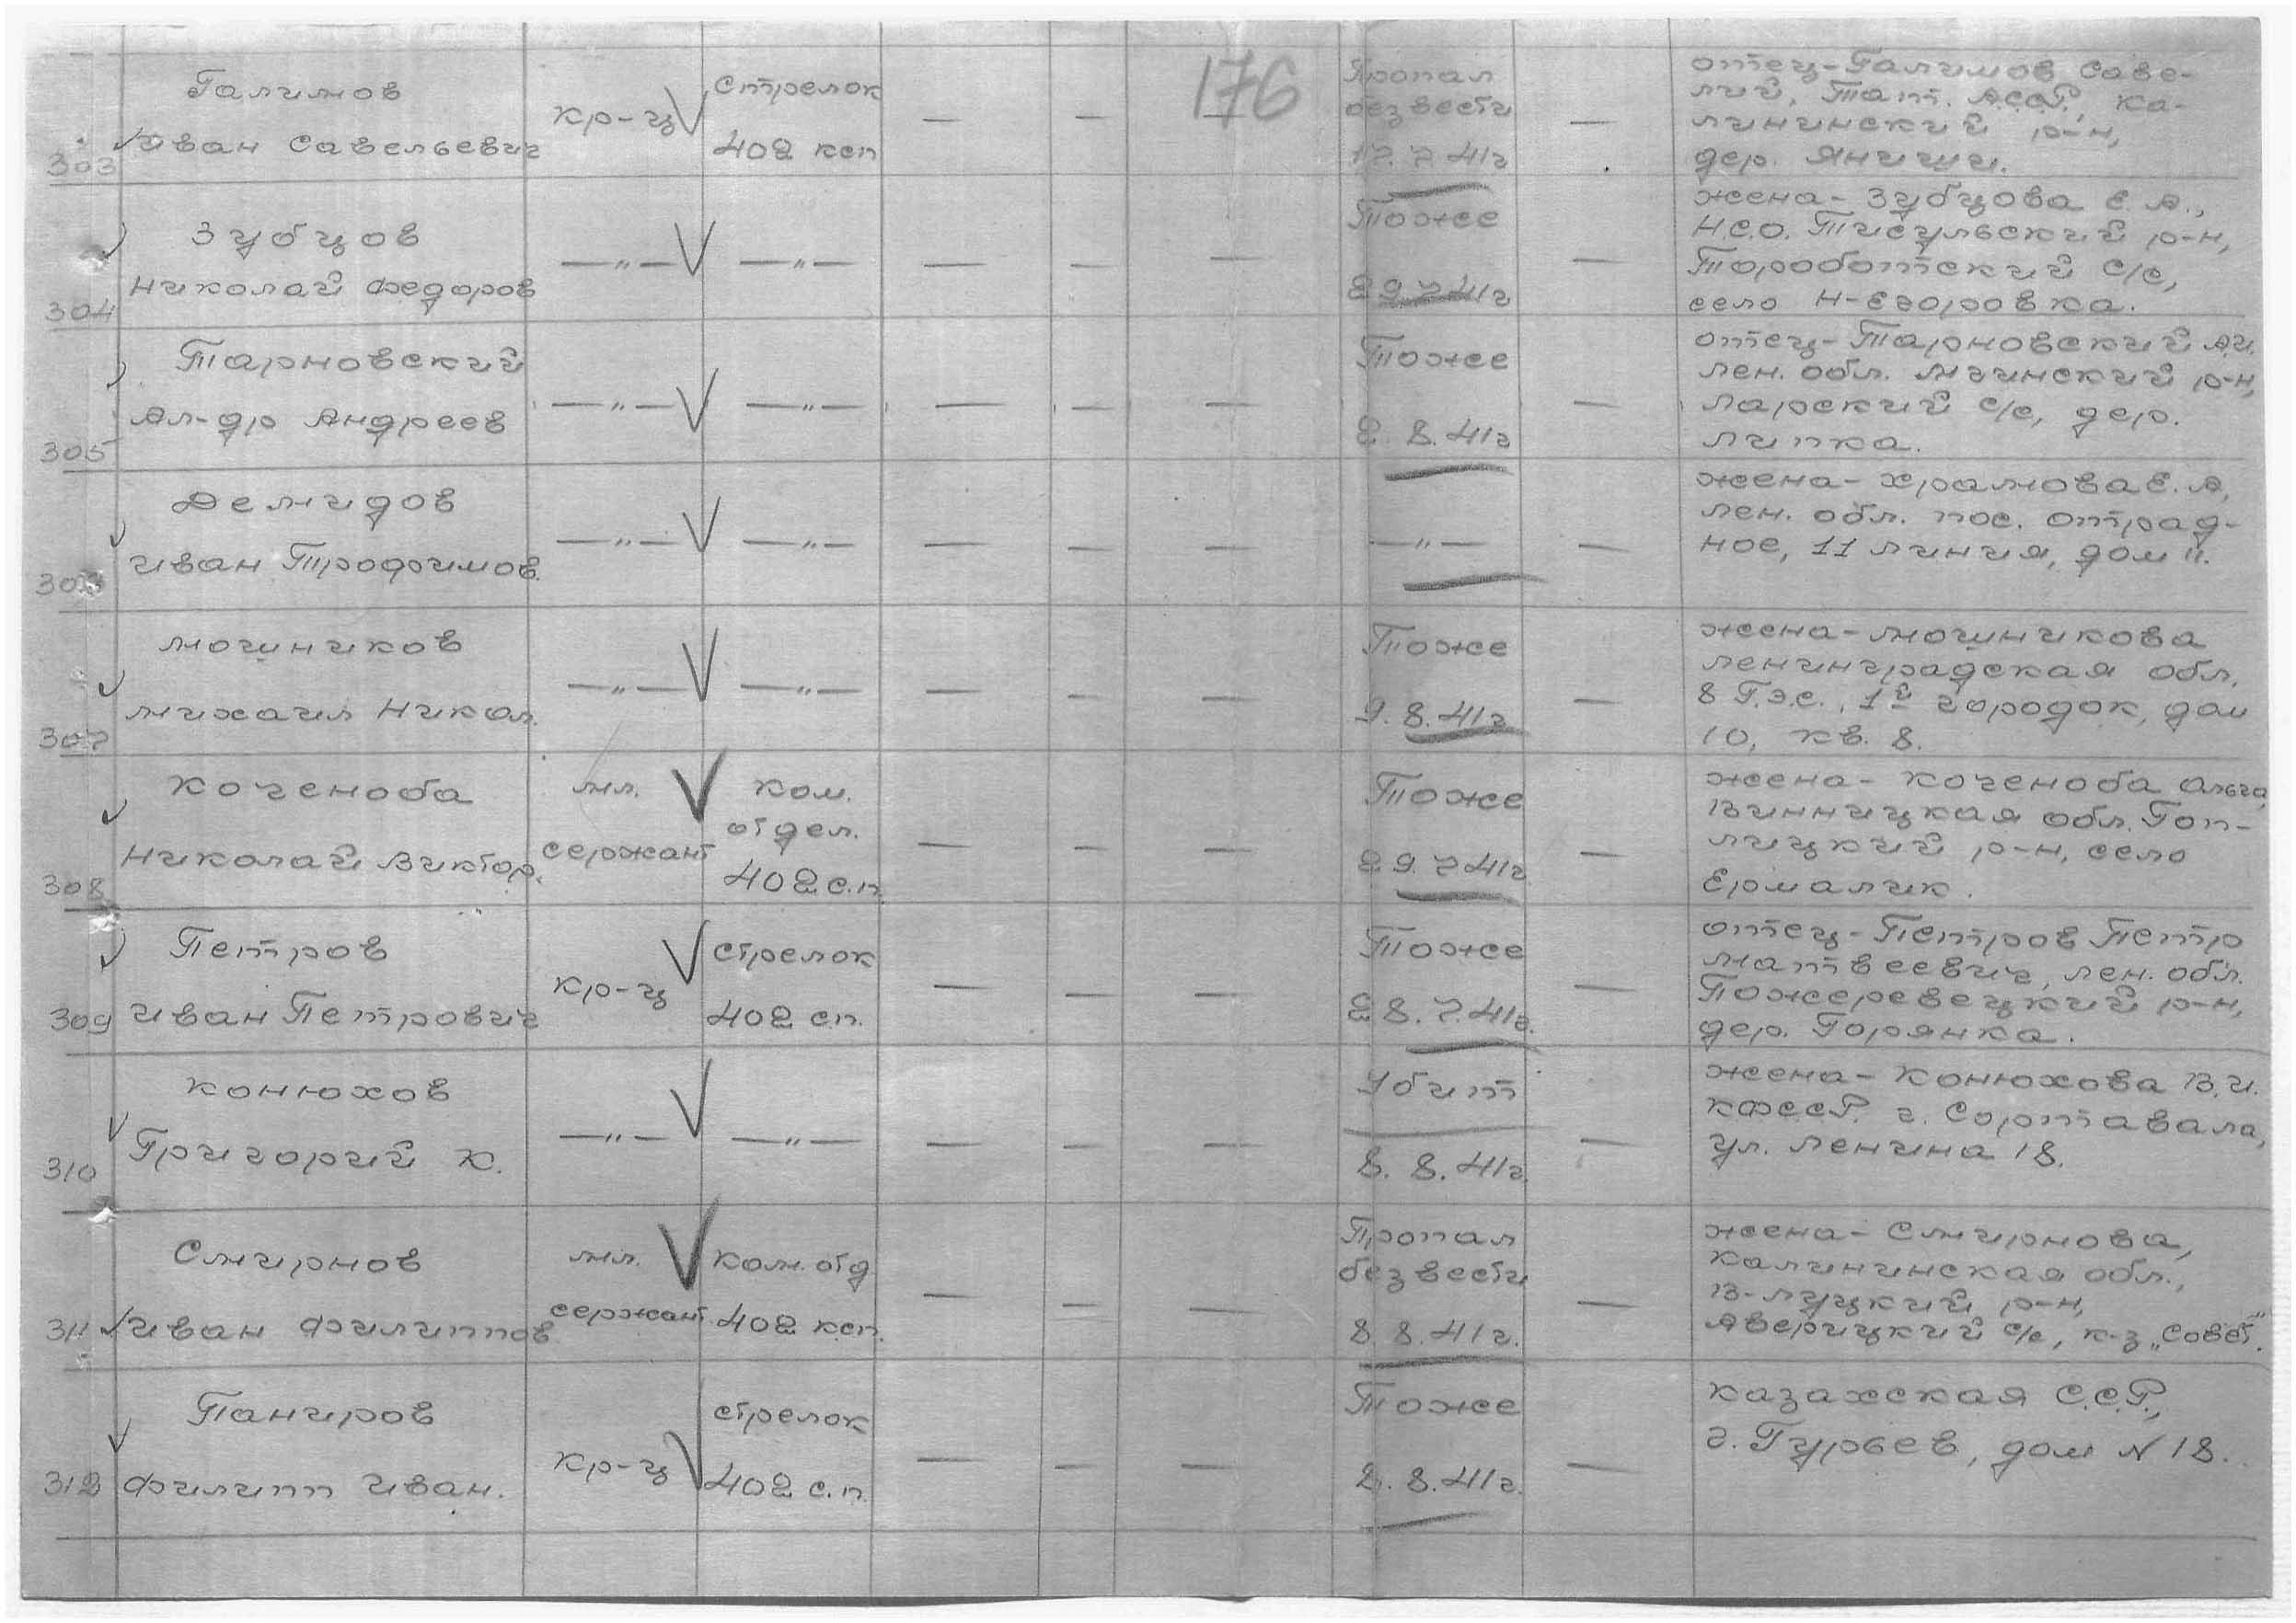 176
Галимов
Иван Савельевич
303
кр-ц
Стрелок
402 ксп
—
—
Пропал
безвести
17.7.41г
—
отец-Галимов Саве-
лий, Тат. АССР, Ка-
лининский р-н,
дер. Яничи.
Зубцов
Николай Федоров
304
—"—
—"—
—
—
—
Тоже
29.7.41г
—
жена-Зубцова Е.А.,
Н.С.О. Тисульский р-н,
Тороботский с/с,
село Н-Егоровка.
Тарновский
Ал-др Андреев
305
—"—
—"—
—
—
—
Тоже
2.8.41г
—
отец-Тарновский А.И.
лен. обл. Мгинский р-н,
Ларский с/с, дер.
Липка.
Демидов
Иван Трофимов.
—"—
—"—
—
—
—
—"—
—
жена-Храмова Е.А,
лен. обл. пос. Отрад-
ное, 11 линия, дом 11.
Мошников
Михаил Никол.
307
—"—
—"—
—
—
—
Тоже
9.8.41г
—
жена-Мошникова
Ленинградская обл.
8 Г.Э.С., 1й городок, дом
10, кв. 8.
Коченоба
Николай Виктор.
308
мл.
сержант
ком.
отдел.
402 с.п.
—
—
—
Тоже
29.7.41г
—
жена-Коченоба Ольга,
Винницкая обл. Гоп-
лицкий р-н, село
Ермалик.
Петров
Иван Петрович
309
кр-ц
стрелок
402 сп.
—
—
—
Тоже
28.7.41г.
—
отец-Петров Петр
Матвеевич, лен. обл.
Пожеревецкий р-н,
дер. Горянка.
Конюхов
Григорий К.
310
—"—
—"—
—
—
—
Убит
8.8.41г.
—
жена-Конюхова В.И.
КФССР. г. Сортавала,
ул. Ленина 18.
Смирнов
Иван Филиппов.
311
мл.
сержант
ком. отд
402 ксп.
—
—
—
Пропал
безвести
8.8.41г.
—
жена-Смирнова,
Калининская обл.,
В-Луцкий р-н,
Аверицкий с/с, к-з „Совет".
Паниров
Филипп Иван.
312
кр-ц
стрелок
402 с.п.
—
—
—
Тоже
2.8.41г.
—
Казахская С.С.Р.,
г. Гурьев, дом N 18.